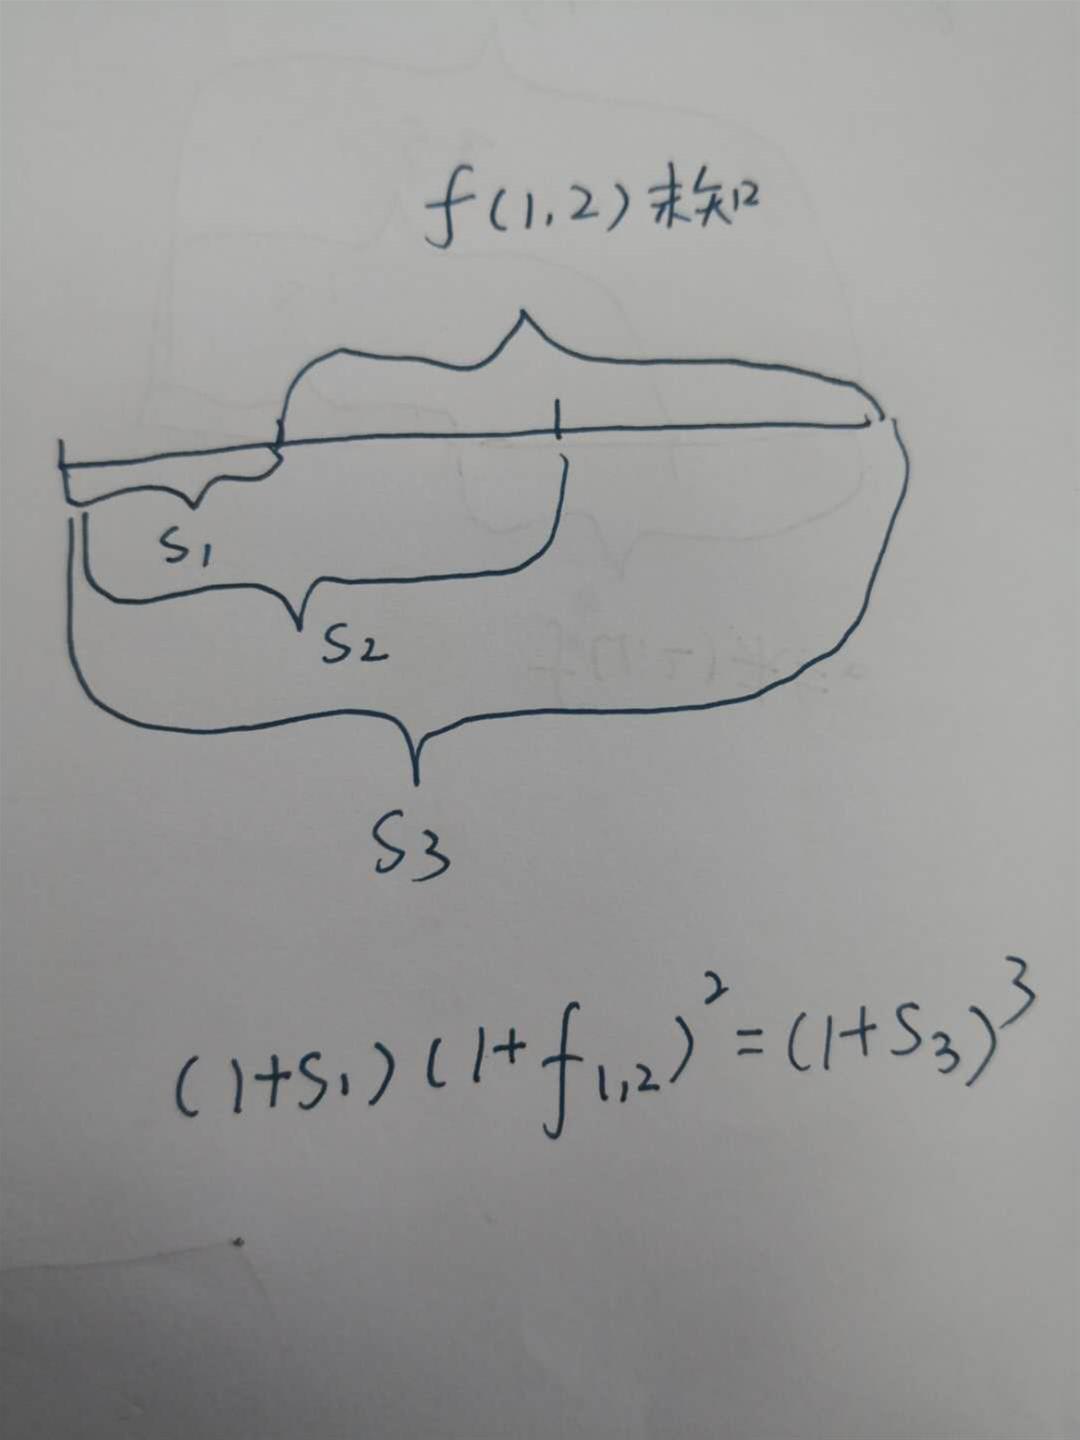 f(1,2)未知
S1
S2
S3
(1+S₁)(1+f₁,₂)²=(1+S₃)³